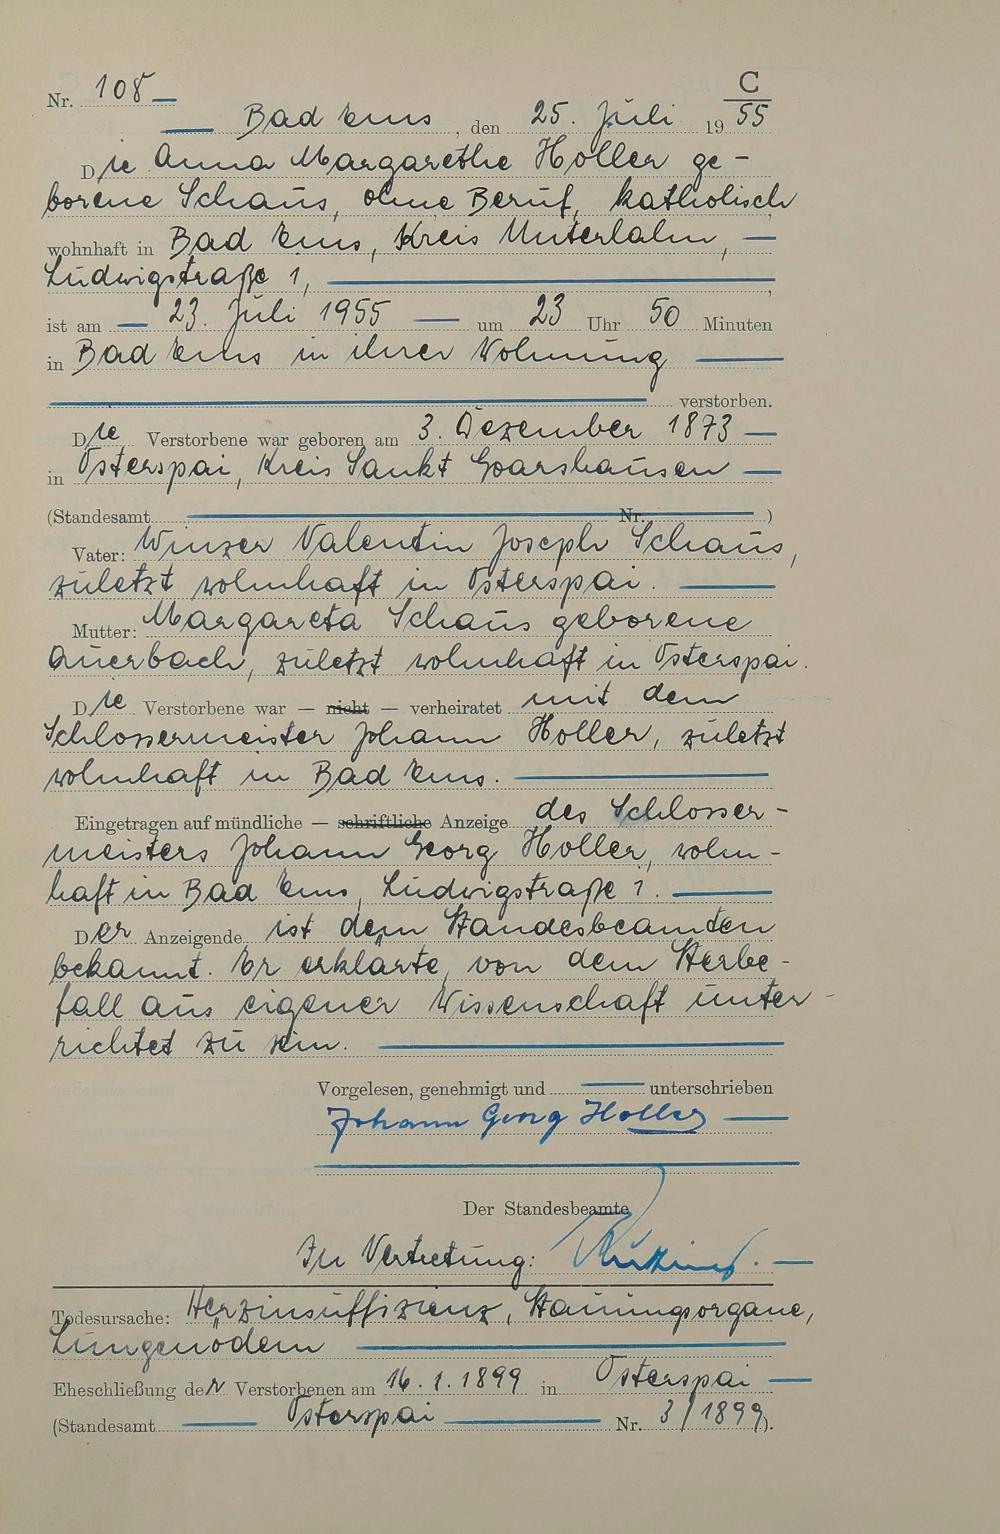 C
Nr. 108
Bad Ems, den 25. Juli 1955
Die Anna Margarethe Holler ge-
borene Schaus, ohne Beruf, katholisch
wohnhaft in Bad Ems, Kreis Unterlahn,
Ludwigstraße 1,
ist am 23. Juli 1955 um 23 Uhr 50 Minuten
in Bad Ems in ihrer Wohnung
verstorben.
Die Verstorbene war geboren am 3. Dezember 1873
in Osterspai, Kreis Sankt Goarshausen
(Standesamt Nr. )
Vater: Winzer Valentin Joseph Schaus,
zuletzt wohnhaft in Osterspai.
Mutter: Margareta Schaus geborene
Auerbach, zuletzt wohnhaft in Osterspai.
Die Verstorbene war — nicht — verheiratet mit dem
Schlossermeister Johann Holler, zuletzt
wohnhaft in Bad Ems.
Eingetragen auf mündliche — schriftliche Anzeige des Schlosser-
meisters Johann Georg Holler, wohn-
haft in Bad Ems, Ludwigstraße 1.
Der Anzeigende ist dem Standesbeamten
bekannt. Er erklärte, von dem Sterbe-
fall aus eigener Wissenschaft unter-
richtet zu sein.
Vorgelesen, genehmigt und unterschrieben
Johann Georg Holler
Der Standesbeamte
In Vertretung:
Todesursache: Herzinsuffizienz, Stauungsorgane,
Lungenödem
Eheschließung der Verstorbenen am 16.1.1899 in Osterspai
(Standesamt Osterspai Nr. 3/1899).